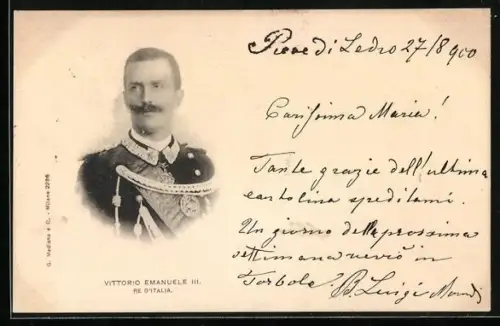 Pieve di Ledro 27/8 900
Carissima Maria!
Tante grazie dell'ultima
cartolina speditami.
Un giorno della prossima
settimana verrò in
Torbole. B. Luigi
G. Modiano è C. - Milano 2098
VITTORIO EMANUELE III.
RE D'ITALIA.